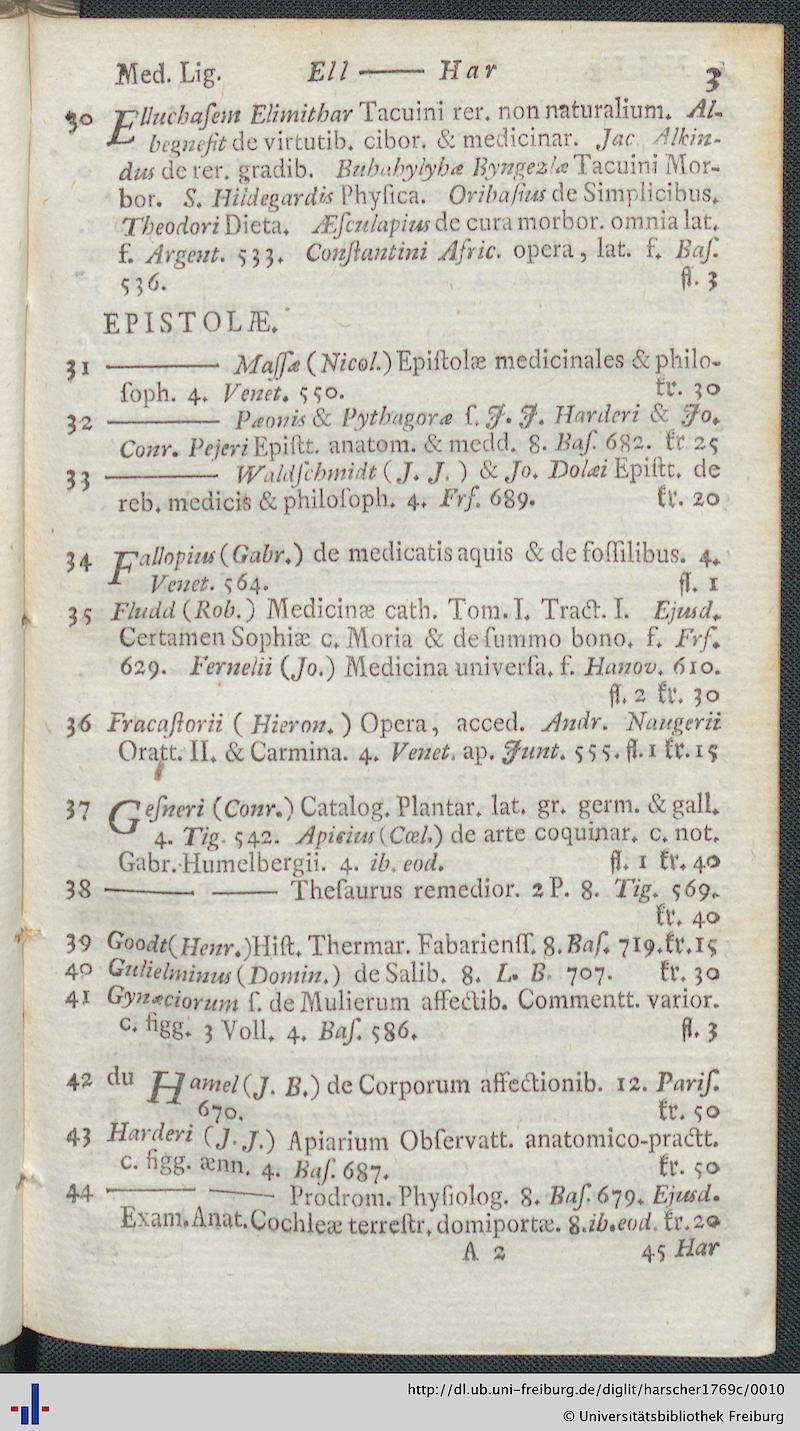 Med. Lig. Ell —— Har 3
30 Elluchaſem Elimithar Tacuini rer. non naturalium. Al-
begneſit de virtutib. cibor. & medicinar. Jac Alkin-
dus de rer. gradib. Buhahylyhæ Byngezlæ Tacuini Mor-
bor. S. Hildegardis Phyſica. Oribaſius de Simplicibus.
Theodori Dieta. Æſculapius de cura morbor. omnia lat.
f. Argent. 533. Conſtantini Afric. opera, lat. f. Baſ.
536. fl. 3
EPISTOLÆ.
31 ——— Maſſæ (Nicol.) Epiſtolæ medicinales & philo-
ſoph. 4. Venet. 550. kr. 30
32 ——— Pæonis & Pythagoræ ſ. J. J. Harderi & Jo.
Conr. Pejeri Epiſtt. anatom. & medd. 8. Baſ. 682. kr 25
33 ——— Waldſchmidt (J. J.) & Jo. Dolæi Epiſtt. de
reb. medicis & philoſoph. 4. Frſ. 689. kr. 20
34 Fallopius (Gabr.) de medicatis aquis & de foſſilibus. 4.
Venet. 564. fl. 1
35 Fludd (Rob.) Medicinæ cath. Tom. I. Tract. I. Ejusd.
Certamen Sophiæ c. Moria & de ſummo bono. f. Frſ.
629. Fernelii (Jo.) Medicina univerſa. f. Hanov. 610.
fl. 2 kr. 30
36 Fracaſtorii (Hieron.) Opera, acced. Andr. Naugerii
Oratt. II. & Carmina. 4. Venet. ap. Junt. 555. fl. 1 kr. 15
37 Geſneri (Conr.) Catalog. Plantar. lat. gr. germ. & gall.
4. Tig. 542. Apicius (Cœl.) de arte coquinar. c. not.
Gabr. Humelbergii. 4. ib. eod. fl. 1 kr. 40
38 ——— ——— Theſaurus remedior. 2 P. 8. Tig. 569.
kr. 40
39 Goodt (Henr.) Hiſt. Thermar. Fabarienſſ. 8. Baſ. 719. kr. 15
40 Gulielminus (Domin.) de Salib. 8. L. B. 707. kr. 30
41 Gynæciorum ſ. de Mulierum affectib. Commentt. varior.
c. figg. 3 Voll. 4. Baſ. 586. fl. 3
42 du Hamel (J. B.) de Corporum affectionib. 12. Pariſ.
670. kr. 50
43 Harderi (J. J.) Apiarium Obſervatt. anatomico-practt.
c. figg. ænn. 4. Baſ. 687. kr. 50
44 ——— ——— Prodrom. Phyſiolog. 8. Baſ. 679. Ejusd.
Exam. Anat. Cochleæ terreſtr. domiportæ. 8. ib. eod. kr. 20
A 2 45 Har
http://dl.ub.uni-freiburg.de/diglit/harscher1769c/0010
© Universitätsbibliothek Freiburg